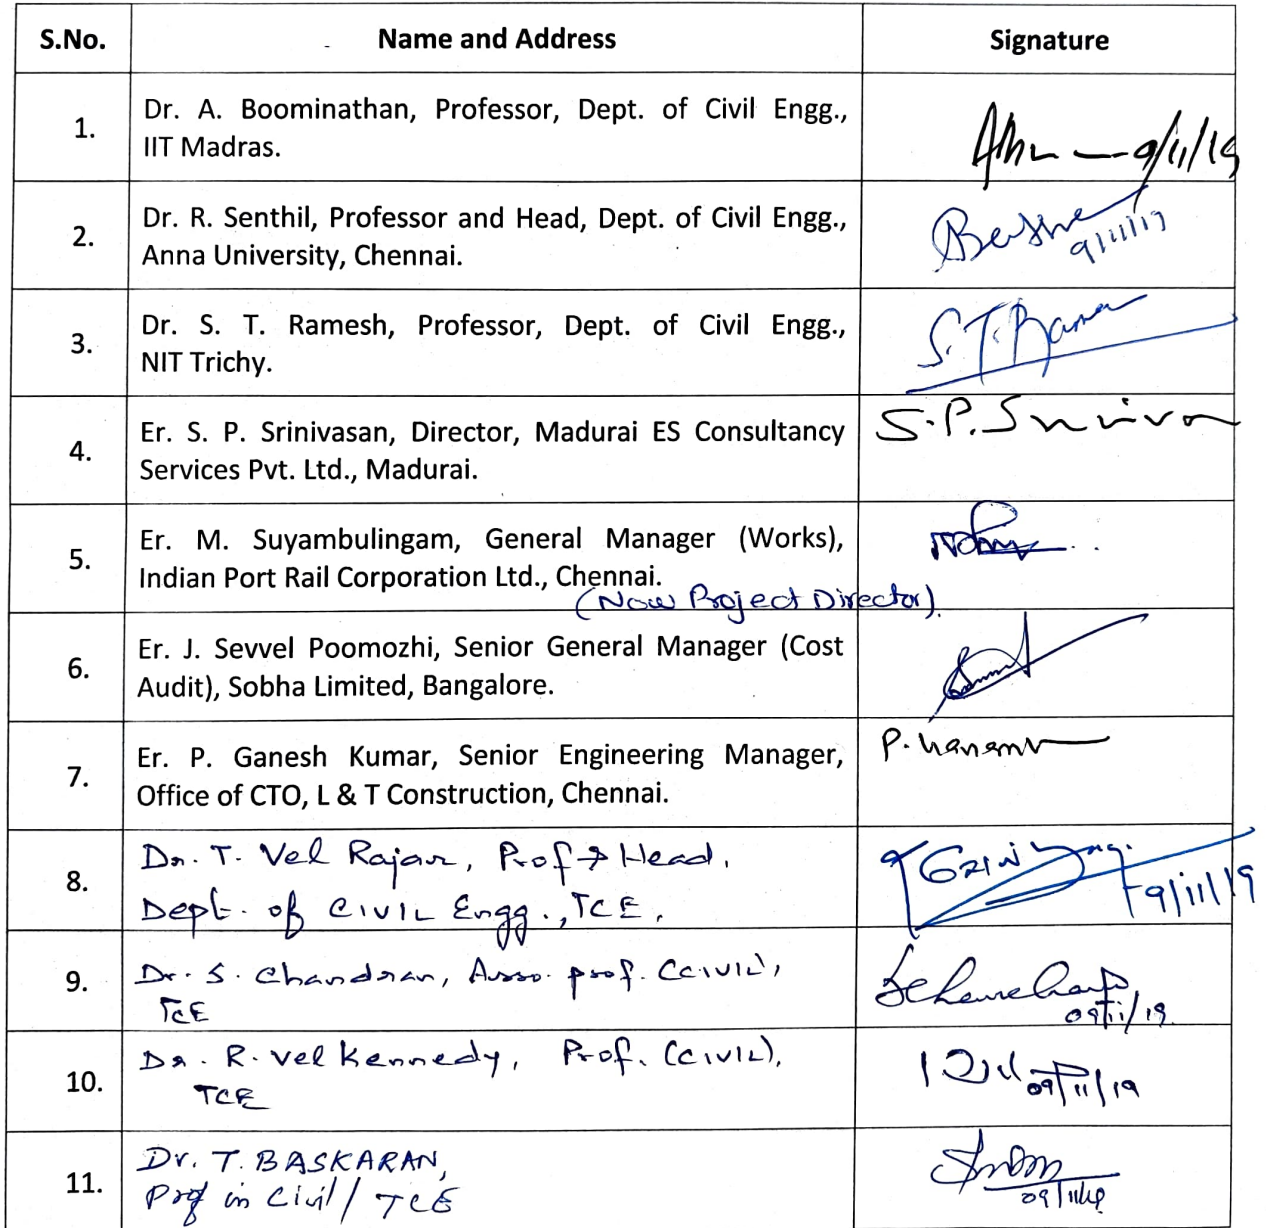 S.No. Name and Address Signature
1. Dr. A. Boominathan, Professor, Dept. of Civil Engg.,
IIT Madras.
9/11/19
2. Dr. R. Senthil, Professor and Head, Dept. of Civil Engg.,
Anna University, Chennai.
9/11/19
3. Dr. S. T. Ramesh, Professor, Dept. of Civil Engg.,
NIT Trichy.
S. T. Rame
4. Er. S. P. Srinivasan, Director, Madurai ES Consultancy
Services Pvt. Ltd., Madurai.
S.P.
5. Er. M. Suyambulingam, General Manager (Works),
Indian Port Rail Corporation Ltd., Chennai.
(Now Project Director).
6. Er. J. Sevvel Poomozhi, Senior General Manager (Cost
Audit), Sobha Limited, Bangalore.
7. Er. P. Ganesh Kumar, Senior Engineering Manager,
Office of CTO, L & T Construction, Chennai.
P.
8. Dr. T. Vel Rajan, Prof & Head,
Dept. of CIVIL Engg., TCE,
9/11/19
9. Dr. S. Chandran, Asso. prof. (CIVIL),
TCE
09/11/19.
10. Dr. R. Vel Kennedy, Prof. (CIVIL),
TCE
09/11/19
11. Dr. T. BASKARAN,
Prof in Civil / TCE
09/11/19